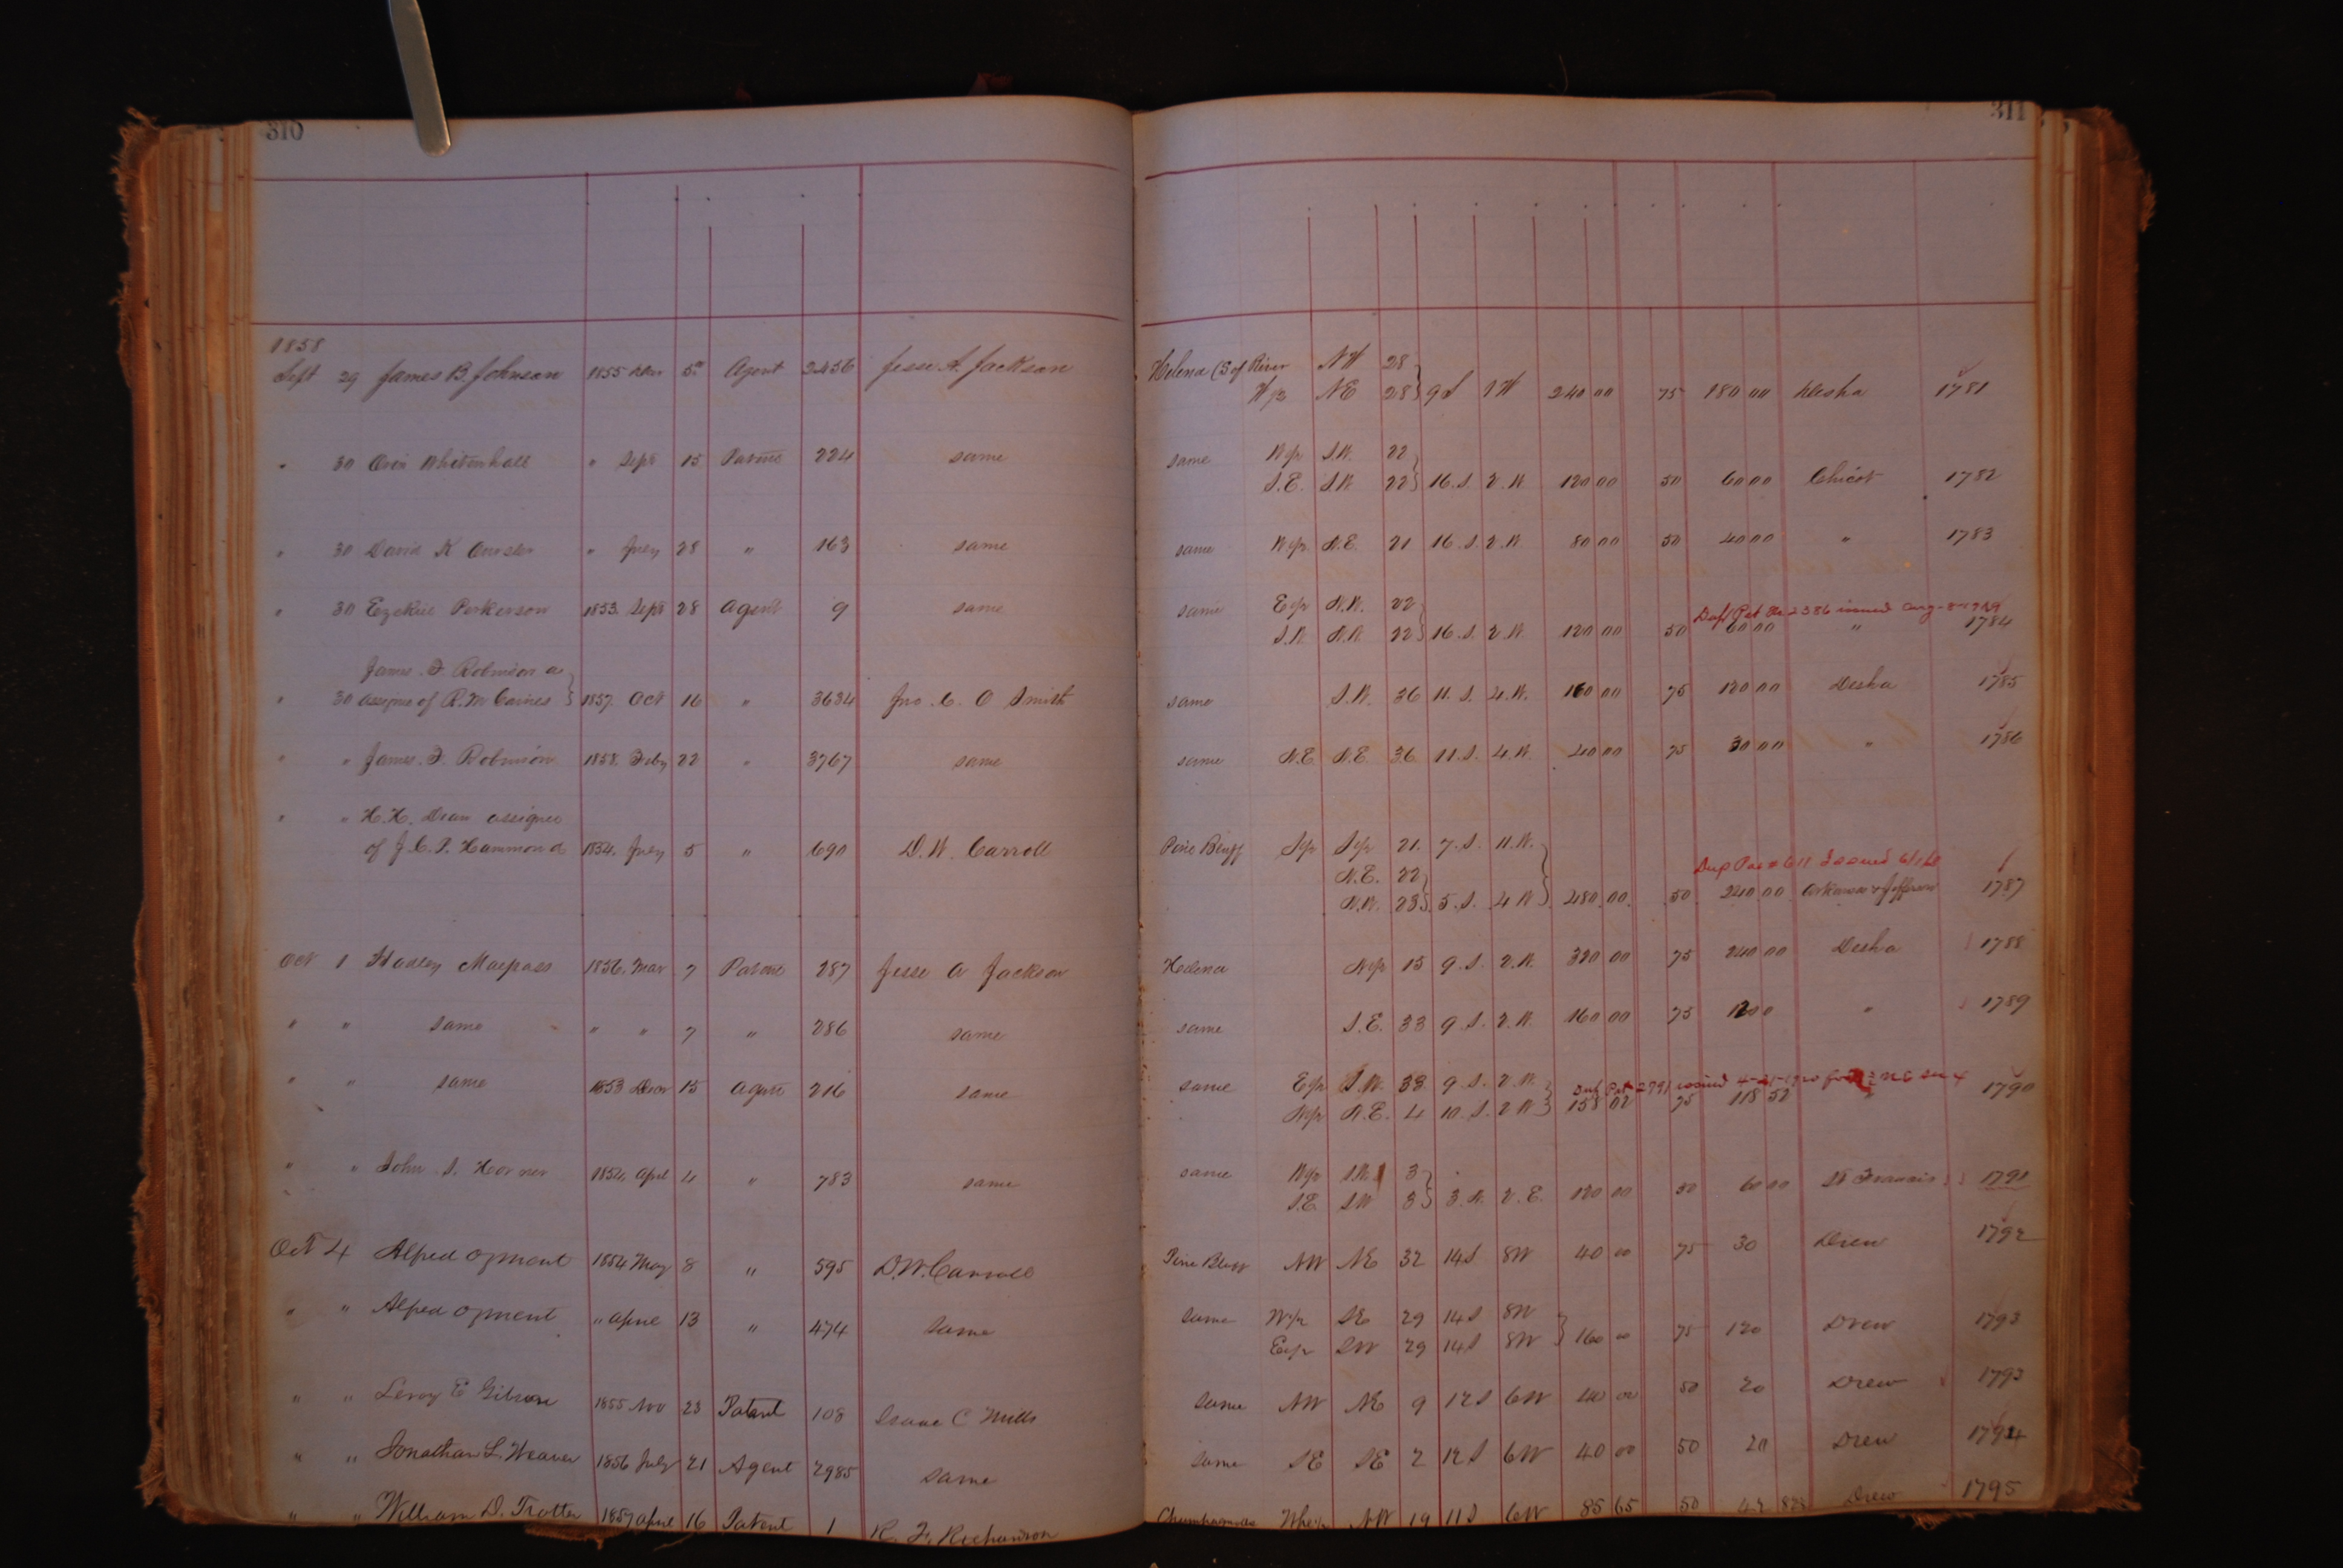 310
311
1858
Sept 29 James B. Johnson 1855 Mar 5th Agent 2456 Jesse A. Jackson Helena (S of River NW 28
W/2 NE 28 9S 1W 240 00 75 180 00 Desha 1781
" 30 Whitenhall " Sept 15 Patent 224 same same W/2 S.W. 22
S.E. S.W. 22 16.S. 2.W. 120 00 50 60 00 Chicot 1782
" 30 David K " July 28 " 163 same same W/2 N.E. 21 16.S. 2.W. 80 00 50 40 00 " 1783
" 30 Ezekiel Perkerson 1853. Sept 28 Agent 9 same same E/2 N.W. 22
Dupl Pat No 2386 issued Aug-8-1919
S.W. N.W. 22 16.S. 2.W. 120 00 50 60 00 " 1784
James. F. Robinson a
" 30 assignee of R.M. Gaines 1857. Oct 16 " 3634 Jno. C. O Smith same S.W. 36 11.S. 4.W. 160 00 75 120 00 Desha 1785
" " James. F. Robinson 1858. Feby 22 " 3767 same same N.E. N.E. 36 11.S. 4.W. 40 00 75 30 00 " 1786
" " H.H. Dean assignee
of J.C.P. Hammond 1854. July 5 " 690 D.W. Carroll Pine Bluff S/2 S/2 21. 7.S. 11.W.
N.E. 22
Dup Pat # 611 Issued
N.W. 23 5.S. 4 W 480.00 50 240.00 Arkansas & Jefferson 1787
Oct 1 Hadley Maepass 1856. Mar 7 Patent 287 Jesse A Jackson Helena N/2 15 9.S. 2.W. 320 00 75 240 00 Desha 1788
" " same " " 7 " 286 same same S.E. 33 9.S. 2.W. 160 00 75 " 1789
" " same 1853 Decr 15 Agent 216 same same E/2 S.W. 33. 9.S. 2.W.
Dup Pat 2791 issued 4-21-1920 for
N/2 N.E. 4 10.S. 2 W 158 02 75 118 52 1790
" " John S. Horner 1854. April 4 " 783 same same W/2 S.W. 3
S.E. SW 3 3.N. 2.E. 120 00 50 60 00 St Francis 1791
Oct 4 Alfred Ozment 1854 May 8 " 595 D.W. Carroll Pine Bluff NW NE 32 14S 8W 40 00 75 30 Drew 1792
" " Alfred Ozment " April 13 " 474 Same Same W/2 SE 29 14S 8W
E/2 SW 29 14S 8W 160 00 75 120 Drew 1793
" " Leroy E Gibson 1855 Nov 23 Patent 108 Isaac C Mills Same NW NE 9 12S 6W 40 00 50 20 Drew 1793
" " Jonathan L. Weaver 1856 July 21 Agent 2985 Same Same SE SE 2 12S 6W 40 00 50 20 Drew 1794
" " William D. Trotter 1857 April 16 Patent 1 R. F. Richardson NW 19 11S 6W 85 65 50 42 82 Drew 1795